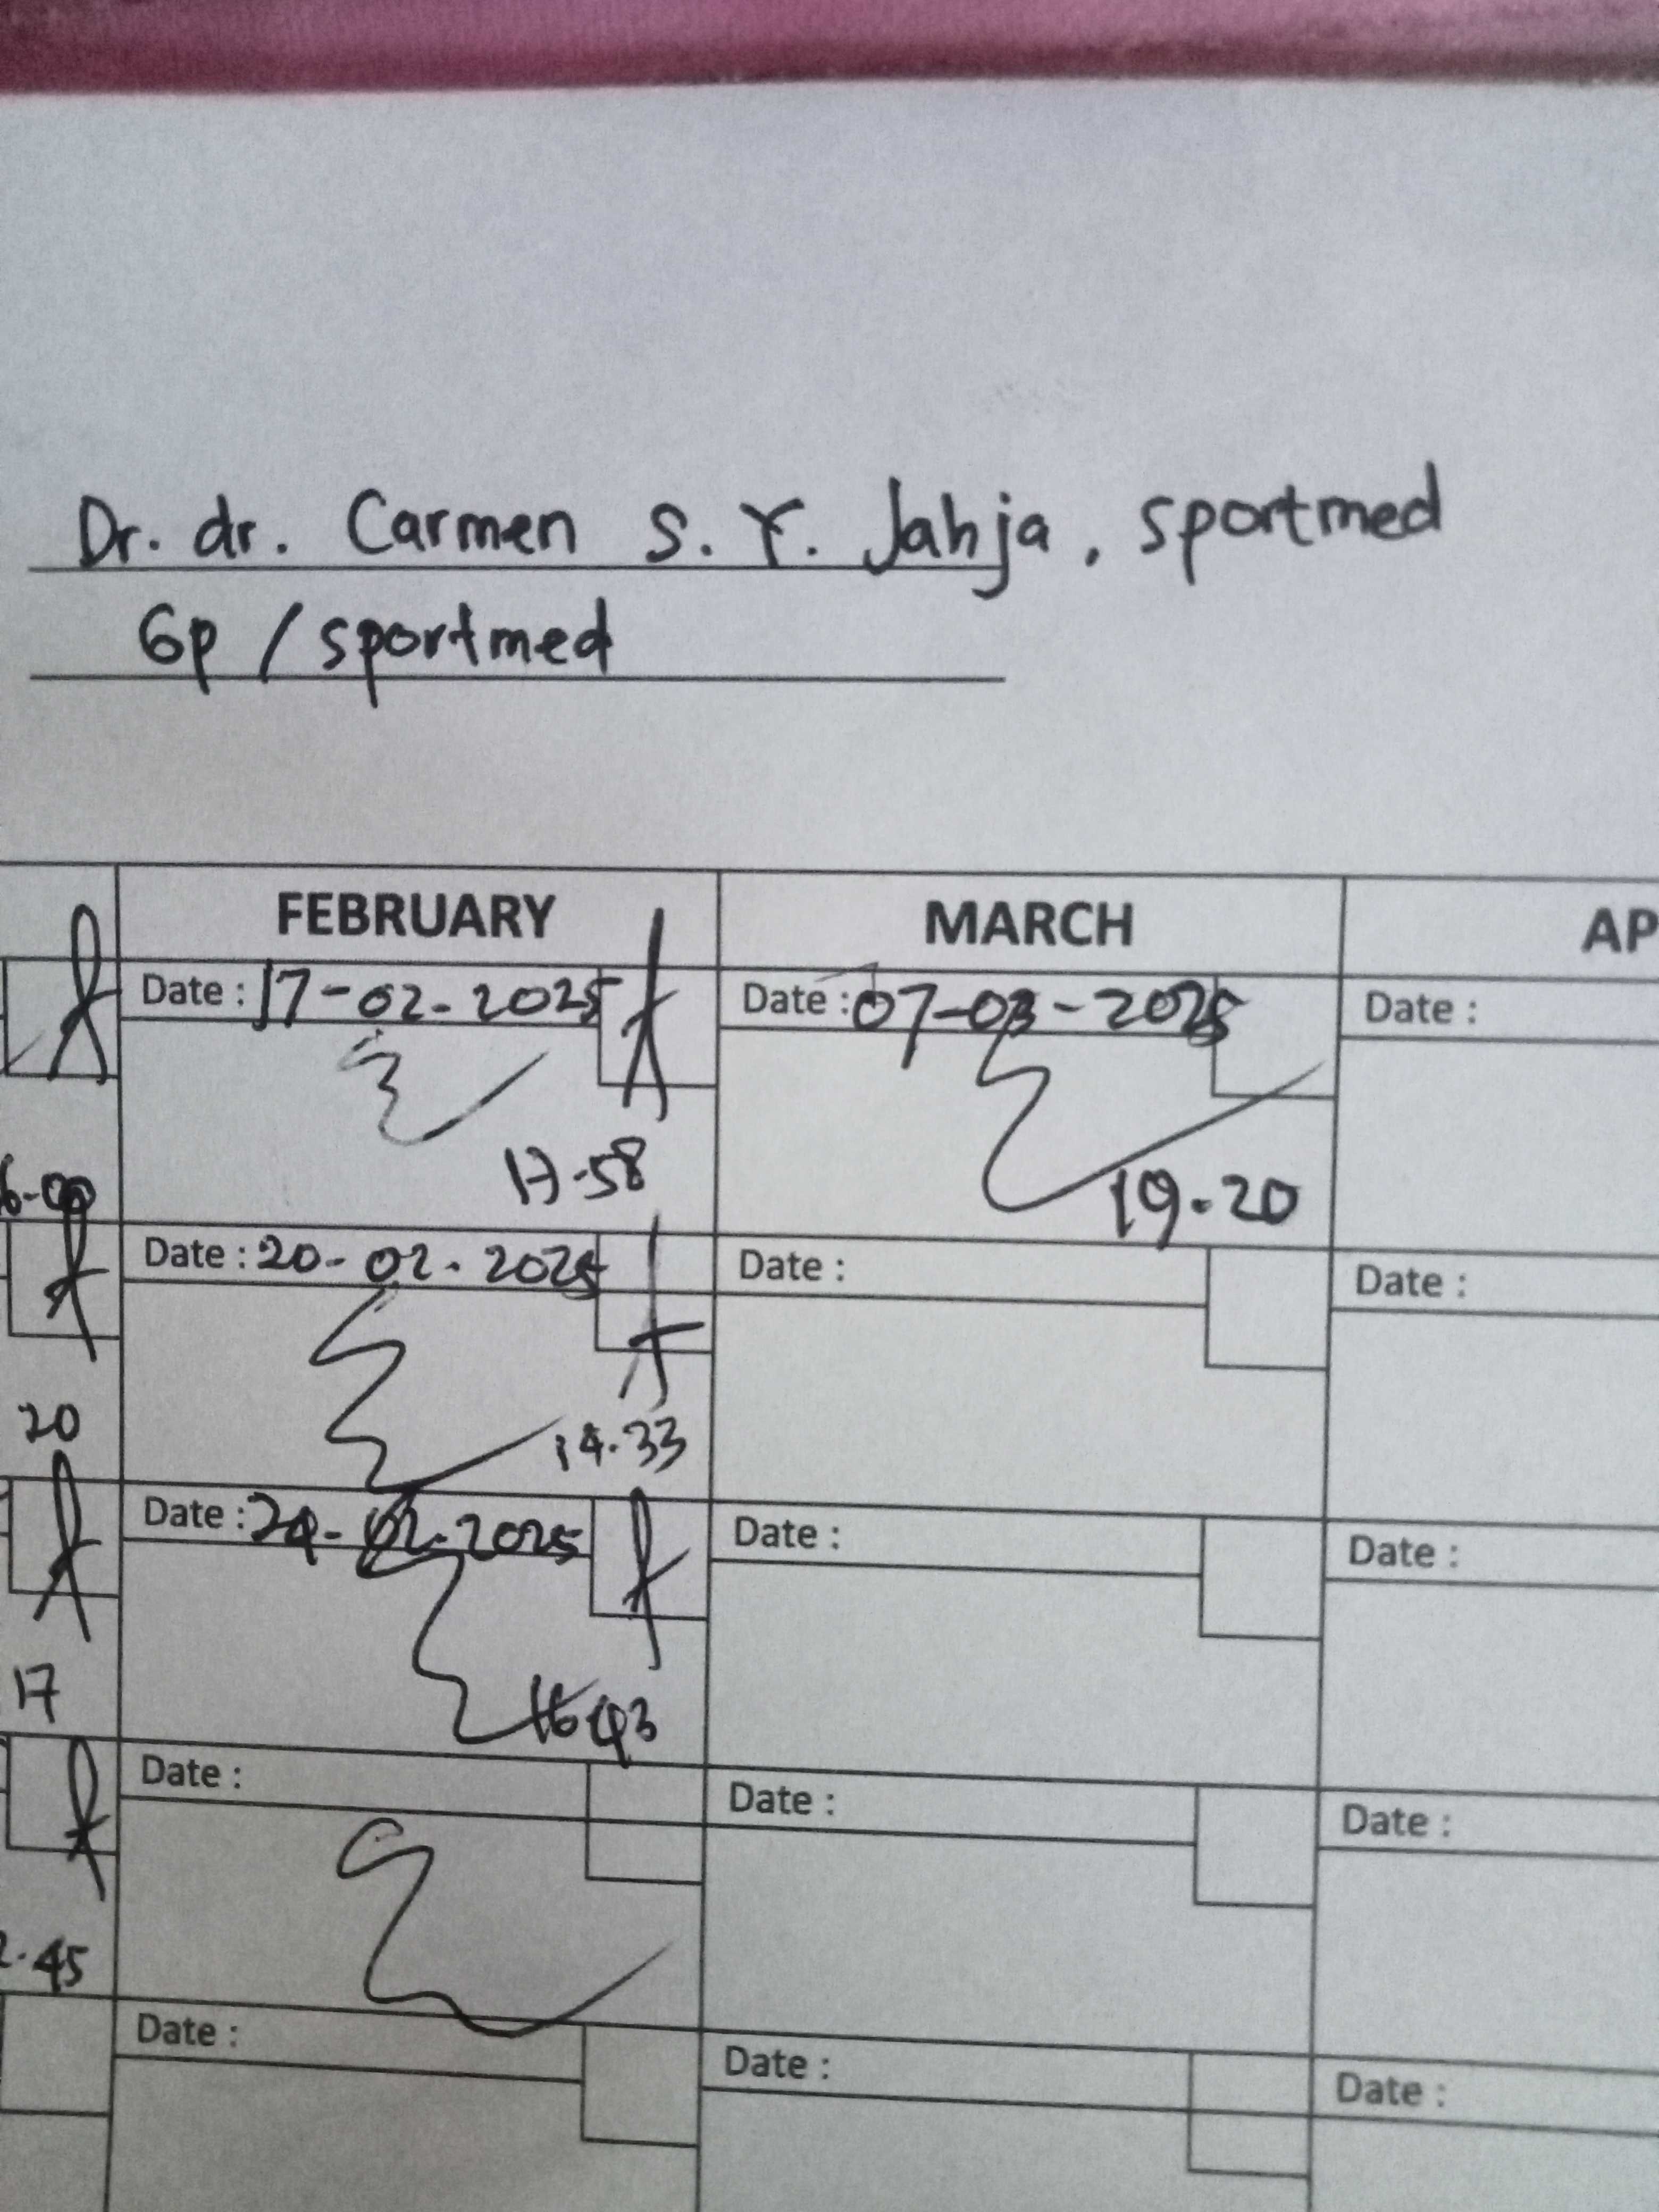 Dr. dr. Carmen S. Y. Jahja, sportmed
Gp / sportmed
FEBRUARY MARCH AP
Date : 17-02-2025 Date : 07-03-2025 Date :
17.58 19.20
Date : 20-02-2025 Date : Date :
20 14.33
Date : 24-02-2025 Date : Date :
17 16 43
Date : Date : Date :
.45
Date : Date : Date :